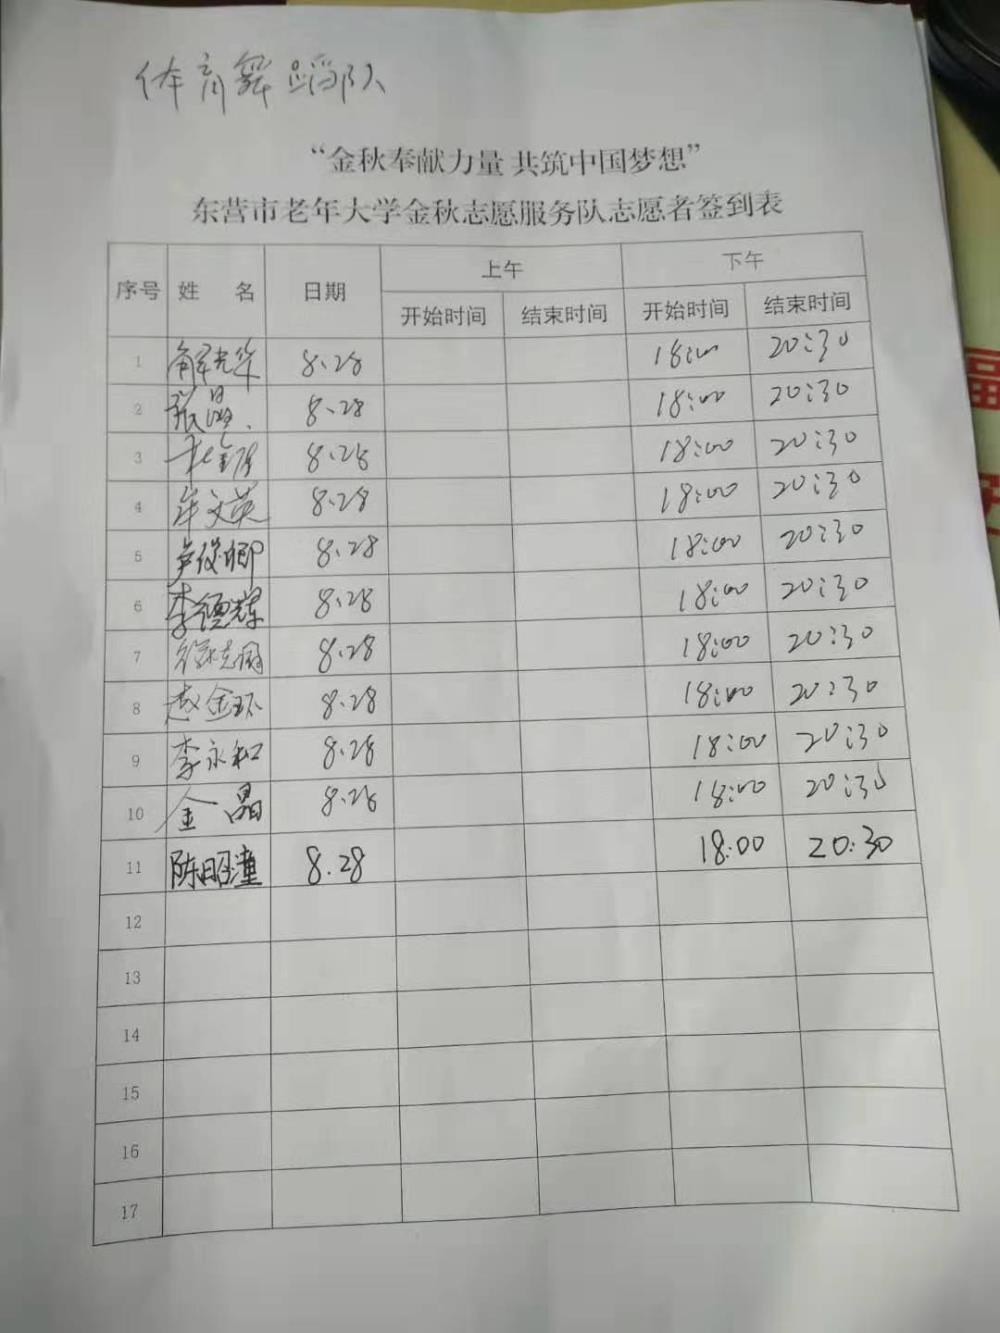 体育舞蹈队
“金秋奉献力量 共筑中国梦想”
东营市老年大学金秋志愿服务队志愿者签到表
序号 姓 名 日期 上午 下午
开始时间 结束时间 开始时间 结束时间
1 解光华 8.28 18:00 20:30
2 张晶 8.28 18:00 20:30
3 8.28 18:00 20:30
4 牟文英 8.28 18:00 20:30
5 芦俊卿 8.28 18:00 20:30
6 李德辉 8.28 18:00 20:30
7 8.28 18:00 20:30
8 赵金环 8.28 18:00 20:30
9 李永和 8.28 18:00 20:30
10 金晶 8.28 18:00 20:30
11 陈昭潼 8.28 18:00 20:30
12
13
14
15
16
17